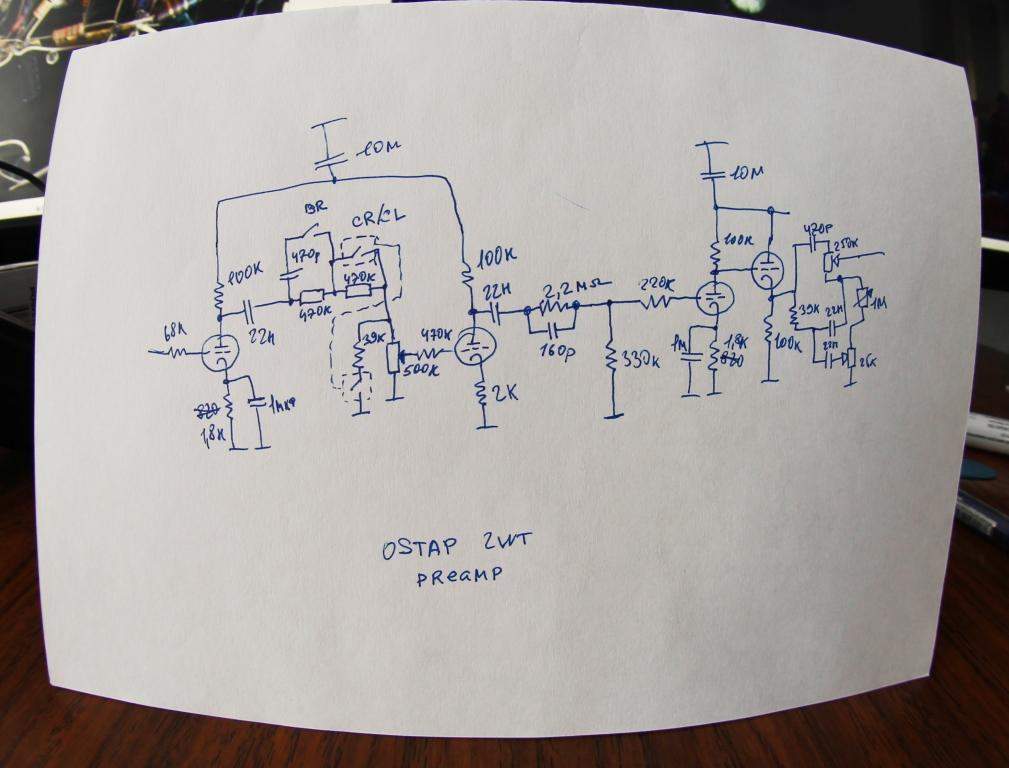 10M
BR
CR/CL
470p
100K
470K
470K
22n
68K
820
1,8K
1мкф
39K
500K
470K
100K
22n
2K
2,2MΩ
160p
330K
220K
10M
100K
1M
1,8K
820
100K
470p
250K
39K
22n
22n
1M
25K
OSTAP 2WT
PREAMP